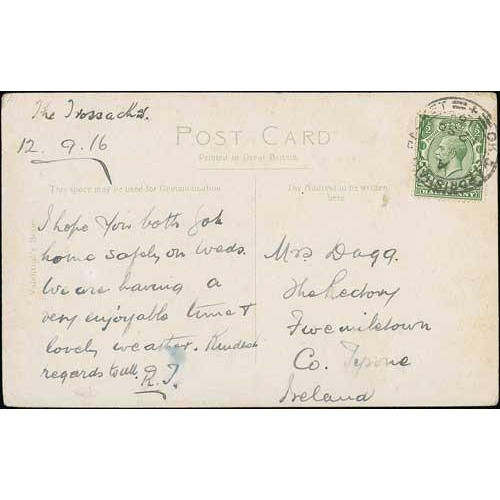 The Trossachs.
12.9.16
POST CARD
Printed in Great Britain
This space may be used for Communication
The Address to be written
here
I hope you both got
home safely on Weds.
We are having a
very enjoyable time &
lovely weather. Kindest
regards to all. R.J.
Mrs Dagg.
The Rectory
Fivemiletown
Co. Tyrone
Ireland
Valentine's Series